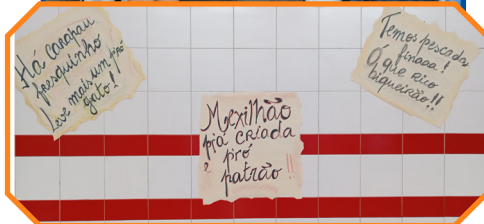 Há carapau
fresquinho
Leve mais um pró
gato!
Mexilhão
prá criada
e pró
patrão!!
Temos pescada
finaaa!
Ó que rico
biqueirão!!